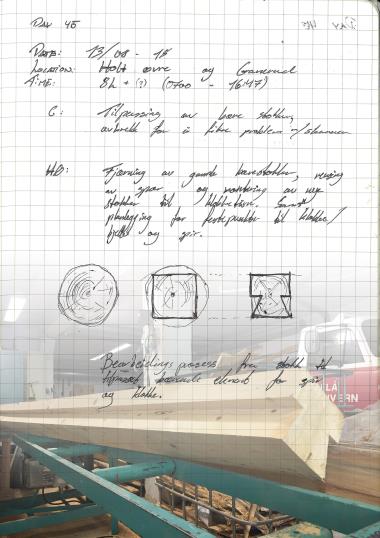 DAY 45
DATE: 13/08 - 15
LOCATION: Holt øvre og Gamerud
TIME: 8h + (?) (0700 - 16:47)
C: Tilpassing av bære stokker,
avbrekk for å fikse problem m/stammen
HD: Fjerning av gamle bærestokker, rensing
av spor og montering av nye
stokker til klokketårn. Samt
planlegging for festepunkter til klokke/
fjell og spir.
Bearbeidings prosess fra stokk til
tilpasset bærende element for spir
og klokke.
LÅ
VERN